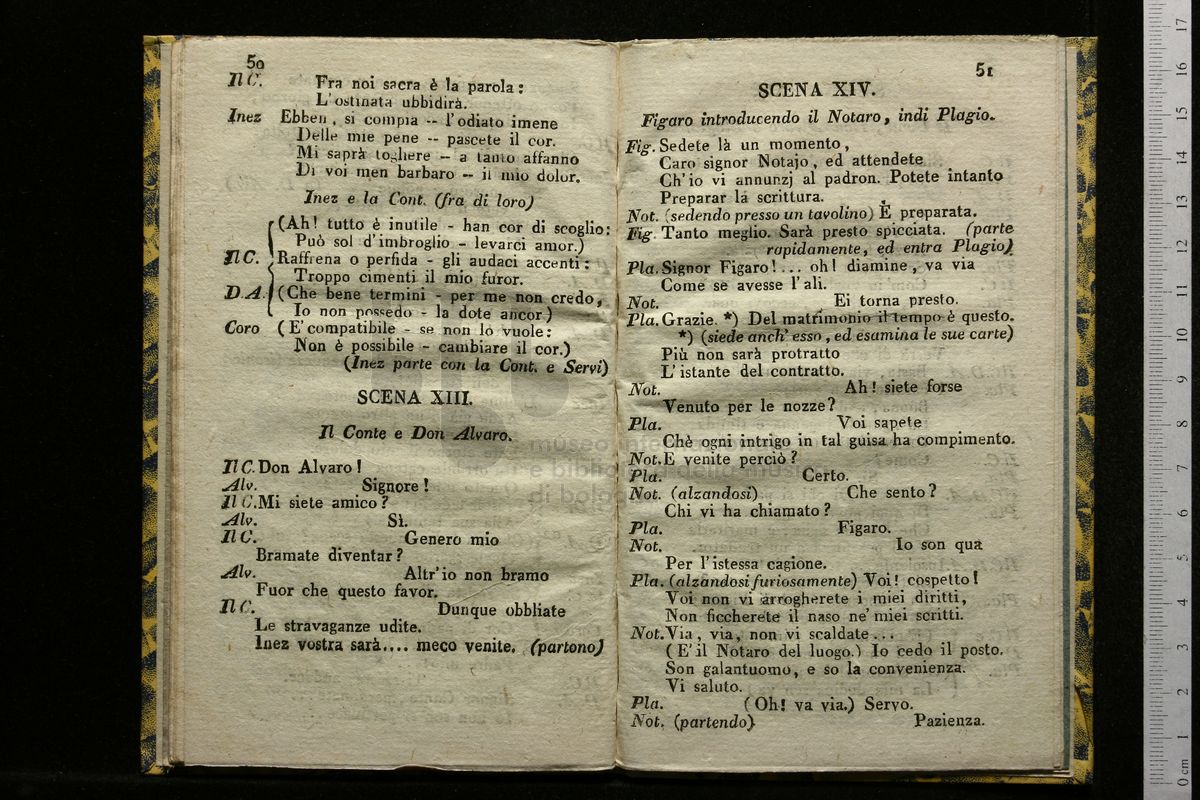 50
Il C. Fra noi sacra è la parola:
L'ostinata ubbidirà.
Inez Ebben, si compia -- l'odiato imene
Delle mie pene -- pascete il cor.
Mi saprà togliere -- a tanto affanno
Di voi men barbaro -- il mio dolor.
Inez e la Cont. (fra di loro)
(Ah! tutto è inutile - han cor di scoglio:
Può sol d'imbroglio - levarci amor.)
Il C. Raffrena o perfida - gli audaci accenti:
Troppo cimenti il mio furor.
D.A. (Che bene termini - per me non credo,
Io non possedo - la dote ancor.)
Coro (E' compatibile - se non lo vuole:
Non è possibile - cambiare il cor.)
(Inez parte con la Cont. e Servi)
SCENA XIII.
Il Conte e Don Alvaro.
Il C. Don Alvaro!
Alv. Signore!
Il C. Mi siete amico?
Alv. Sì.
Il C. Genero mio
Bramate diventar?
Alv. Altr'io non bramo
Fuor che questo favor.
Il C. Dunque obbliate
Le stravaganze udite.
Inez vostra sarà.... meco venite. (partono)
51
SCENA XIV.
Figaro introducendo il Notaro, indi Plagio.
Fig. Sedete là un momento,
Caro signor Notajo, ed attendete
Ch'io vi annunzj al padron. Potete intanto
Preparar la scrittura.
Not. (sedendo presso un tavolino) È preparata.
Fig. Tanto meglio. Sarà presto spicciata. (parte
rapidamente, ed entra Plagio)
Pla. Signor Figaro!... oh! diamine, va via
Come se avesse l'ali.
Not. Ei torna presto.
Pla. Grazie. *) Del matrimonio il tempo è questo.
*) (siede anch'esso, ed esamina le sue carte)
Più non sarà protratto
L'istante del contratto.
Not. Ah! siete forse
Venuto per le nozze?
Pla. Voi sapete
Chè ogni intrigo in tal guisa ha compimento.
Not. E venite perciò?
Pla. Certo.
Not. (alzandosi) Che sento?
Chi vi ha chiamato?
Pla. Figaro.
Not. Io son qua
Per l'istessa cagione.
Pla. (alzandosi furiosamente) Voi! cospetto!
Voi non vi arrogherete i miei diritti,
Non ficcherete il naso ne' miei scritti.
Not. Via, via, non vi scaldate...
(E' il Notaro del luogo.) Io cedo il posto.
Son galantuomo, e so la convenienza.
Vi saluto.
Pla. (Oh! va via.) Servo.
Not. (partendo) Pazienza.